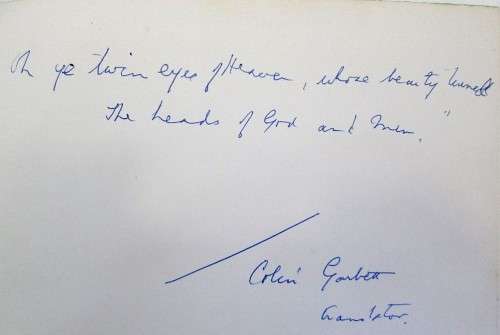 Oh ye twin eyes of Heaven, whose beauty turneth
The heads of God and men."
Colin Garbett
translator.